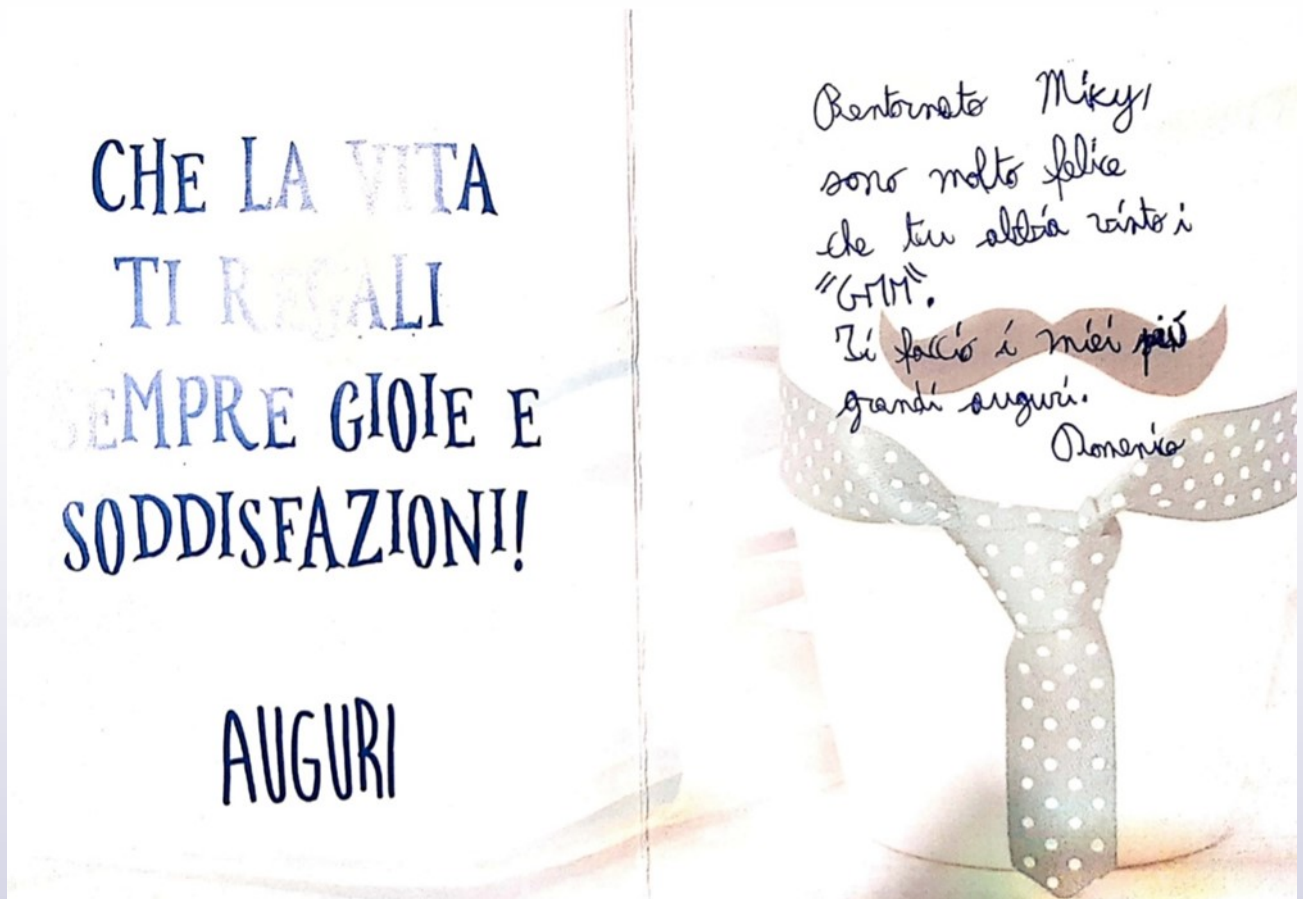 CHE LA VITA
TI REGALI
SEMPRE GIOIE E
SODDISFAZIONI!
AUGURI
Bentornato Miky,
sono molto felice
che tu abbia vinto i
"GMM".
Ti faccio i miei più
grandi auguri.
Domenico